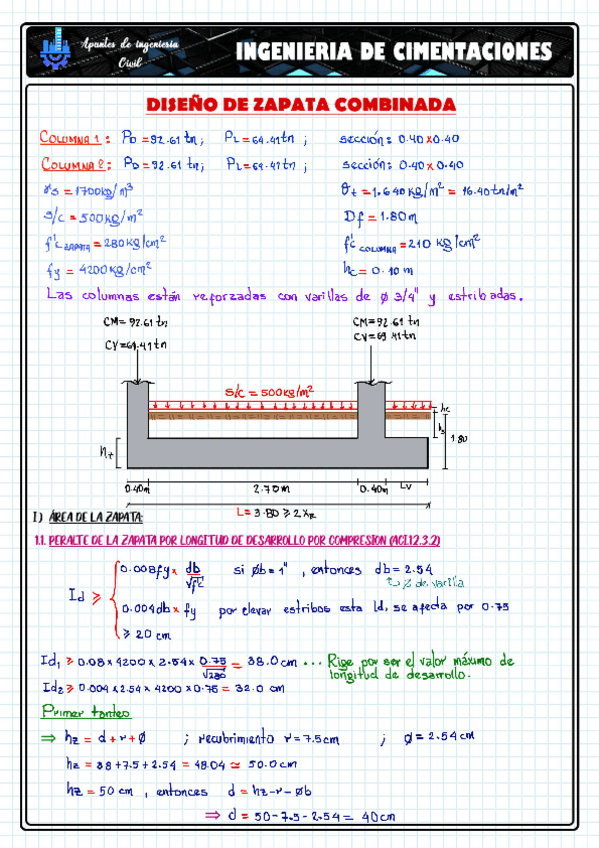 Apuntes de ingeniería
Civil
INGENIERIA DE CIMENTACIONES
DISEÑO DE ZAPATA COMBINADA
COLUMNA 1 : PD=92.61tn ; PL=64.41tn ; sección: 0.40x0.40
COLUMNA 2 : PD=92.61 tn; PL=64.41tn ; sección: 0.40x0.40
γs = 1700kg/m³ σt =1.640kg/m² = 16.40tn/m²
s/c = 500kg/m² Df = 1.80m
f'c ZAPATA = 280kg/cm² f'c COLUMNA =210 kg/cm²
fy = 4200kg/cm² hc = 0.10m
Las columnas están reforzadas con varillas de ø 3/4" y estribadas.
CM= 92.61 tn CM=92.61 tn
CV=64.41tn CV=64.41tn
s/c = 500kg/m²
hc
hs
1.80
hz
0.40m 2.70m 0.40m Lv
L= 3.80 ≥ 2XR
I) ÁREA DE LA ZAPATA:
1.1. PERALTE DE LA ZAPATA POR LONGITUD DE DESARROLLO POR COMPRESION (ACI.12.3.2)
Id ≥ { 0.008fy x db/√f'c si øb=1" , entonces db= 2.54
ø de varilla
0.004db x fy por llevar estribos esta ld, se afecta por 0.75
≥ 20 cm
Id₁ ≥ 0.08x4200x2.54x 0.75/√280 = 38.0cm ... Rige por ser el valor máximo de
longitud de desarrollo.
Id₂ ≥ 0.004x2.54x 4200x0.75 = 32.0 cm
Primer tanteo
⇒ hz = d+r+ø ; recubrimiento r=7.5cm ; ø=2.54cm
hz = 38+7.5+2.54 = 48.04 ≃ 50.0cm
hz = 50 cm , entonces d = hz-r-øb
⇒ d = 50-7.5-2.54= 40cm